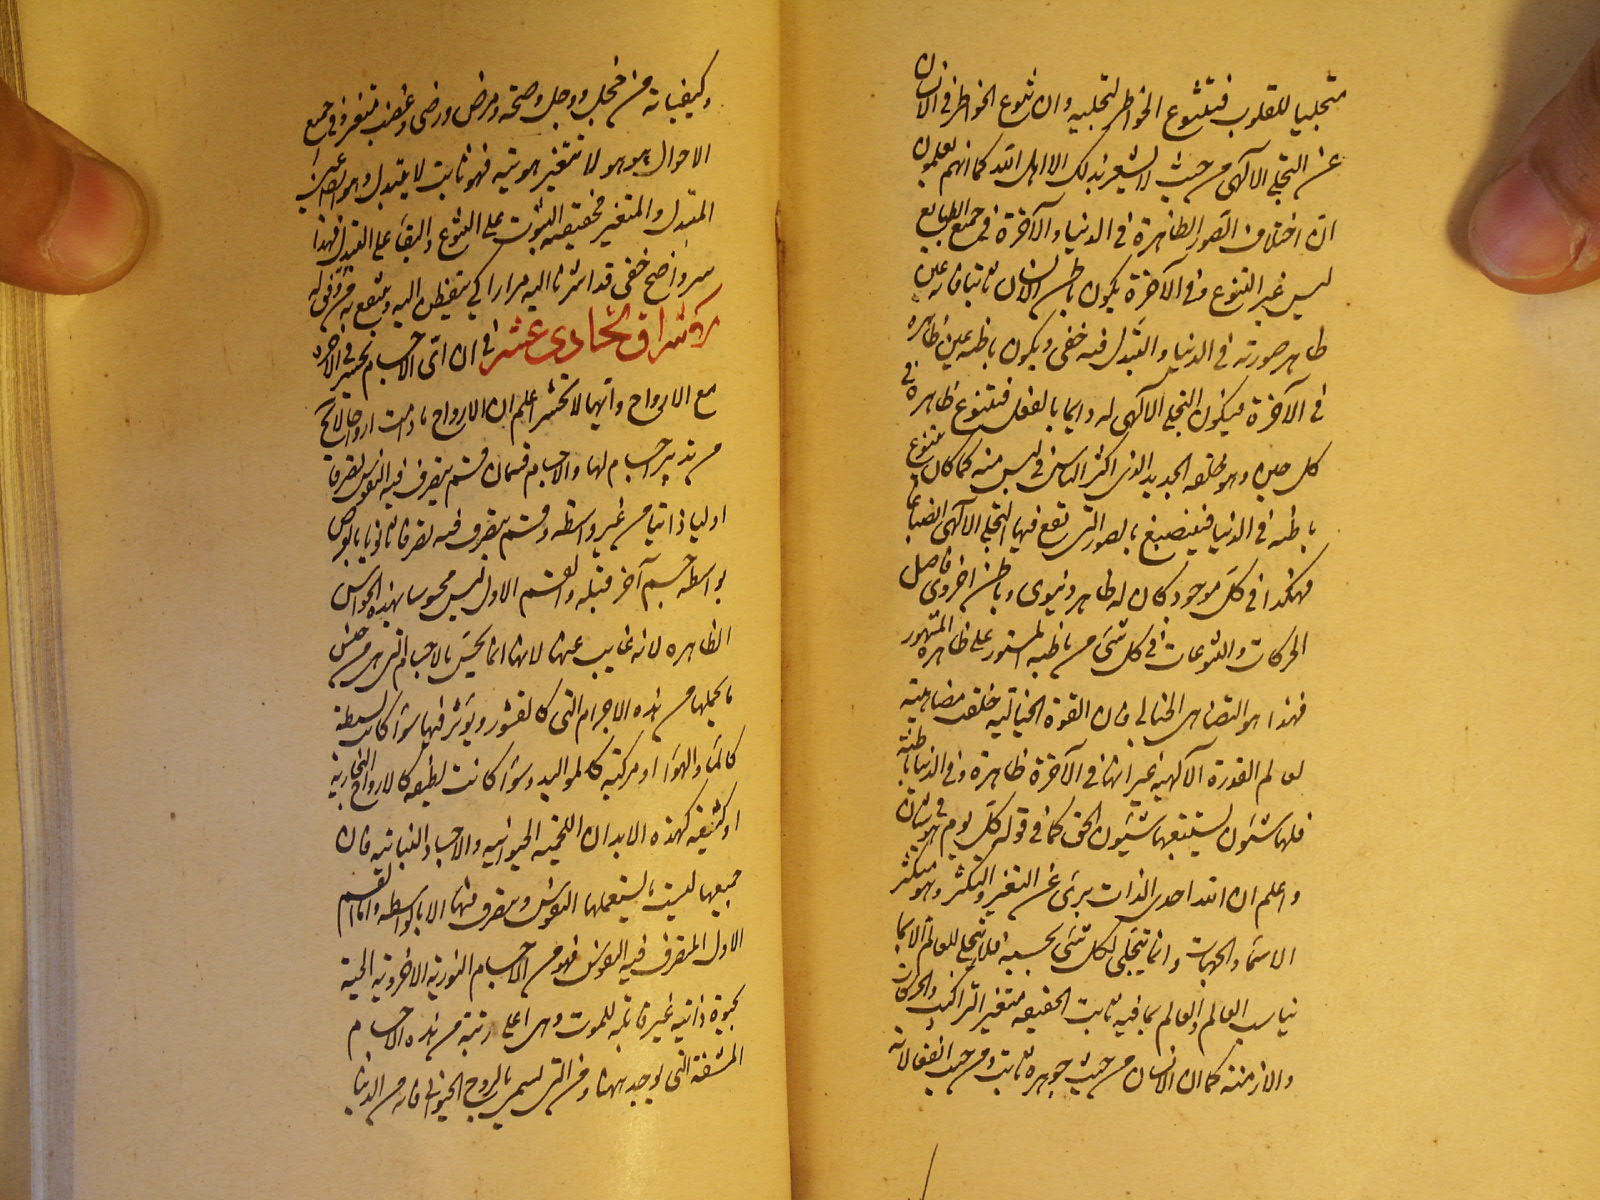 متجليا للقلوب فيتنوع الخواطر لتجليه وان تنوع الخواطر في الانسان
عن التجلي الآلهي من حيث لا يشعر بذلك الا اهل الله كما انهم يعلمون
ان اختلاف الصور الظاهرة في الدنيا والآخرة في جميع الطبايع
ليس غير التنوع وفي الآخرة يكون باطن الانسان ثابتا فانه عين
ظاهر صورته في الدنيا والتبدل فيه خفي ويكون باطنه عين ظاهره
في الآخرة فيكون التجلي الآلهي له دايما بالفعل فيتنوع ظاهره في
كل حين وهو خلقه الجديد الذي اكثر الناس في لبس منه كما كان يتنوع
باطنه في الدنيا فينصبغ بالصور التي تقع فيها التجلي الآلهي انصباغا
فهكذا في كل موجود كان له ظاهر دنيوي وباطن اخروي فاصل
الحركات والتنوعات في كل شئ من باطنه المستور على ظاهره المشهور
فهذا هو التضاهي الخيالي فان القوة الخيالية خلقت مضاهية
لعالم القدرة الآلهية غير انها في الآخرة ظاهرة وفي الدنيا باطنة
فلها شئون يستتبعها شئون الحق كما في قوله كل يوم هو في شان
واعلم ان الله احدى الذات برئ عن التغير والتكثر وهو متكثر
الاسماء والجهات وانما يتجلى لكل شئ بحسبه فلا يتجلى للعالم الا بما
يناسب العالم والعالم بما فيه ثابت الحقيقه متغير التراكيب والحركات
والازمنة كما ان الانسان من حيث جوهره ثابت ومن حيث انفعالاته
وكيفياته من خجل ووجل وصحة ومرض ورضى وغضب متغير وفي جميع
الاحوال هو هو لا تتغير هويته فهو ثابت لا يتبدل وهو بعينه عين
المتبدل والمتغير فحقيقته الثبوت على التنوع والبقاء على التبدل فهذا
سر واضح خفي قد اشرنا اليه مرارا كي يتفطن اليه وينتفع به من وفق له
الاشراق الحادى عشر في ان اي الاجسام يحشر في الآخرة
مع الارواح وايها لا تحشر اعلم ان الارواح ما دامت ارواحا لا تخ
من تدبير اجسام لها والاجسام قسمان قسم يتصرف فيه النفوس تصرفا
اوليا ذاتيا من غير واسطه وقسم يتصرف فيه تصرفا ثانويا بالعرض
بواسطه جسم آخر قبله والقسم الاول ليس محسوسا بهذه الحواس
الظاهره لانه غايب عنها لانها انما تحس بالاجسام التي هي من جنس
ما يحملها من هذه الاجرام التي كالقشور ويؤثر فيها سواء كانت بسيطة
كالماء والهواء او مركبة كالمواليد وسواء كانت لطيفه كالارواح البخارية
او كثيفه كهذه الابدان اللحمية الحيوانيه والاجساد النباتيه فان
جميعها ليست بستعملها النفوس ويتصرف فيها الا بالواسطه واما القسم
الاول المتصرف فيه النفوس فهو من الاجسام النورية الاخروية الحية
بحيوة ذاتية غير قابلة للموت وهي اعلى رتبة من هذه الاجسام
المشفة التي يوجد ههنا ومن التي تسمى بالروح الحيواني فانه من الدنيا